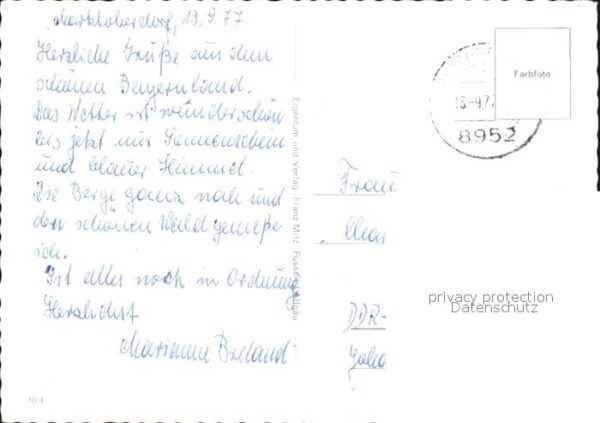 Marktoberdorf, 19.9.77
Herzliche Grüße aus dem
schönen Bayernland.
Das Wetter ist wunderschön
bis jetzt nur Sonnenschein
und blauer Himmel.
Die Berge ganz nah und
den schönen Wald genieße
ich.
Ist alles noch in Ordnung
Herzlichst
Marianne
10/4
Eigentum und Verlag Franz Milz, Füssen
Farbfoto
-9.77
8952
Frau
DDR-
privacy protection
Datenschutz